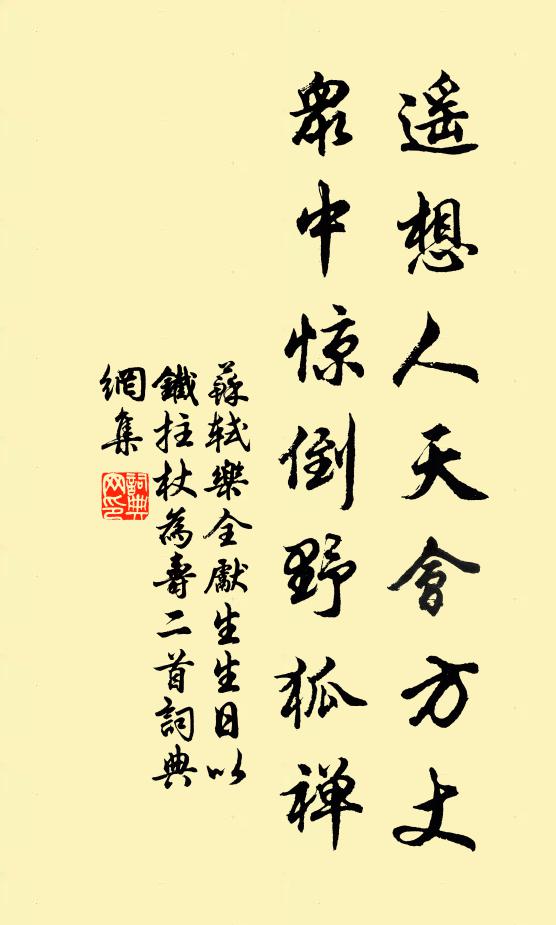 遥想人天會方丈
眾中惊倒野狐禅
蘇軾樂全獻生生日以
鐵拄杖為壽二首詞典
網集
詞典
网印